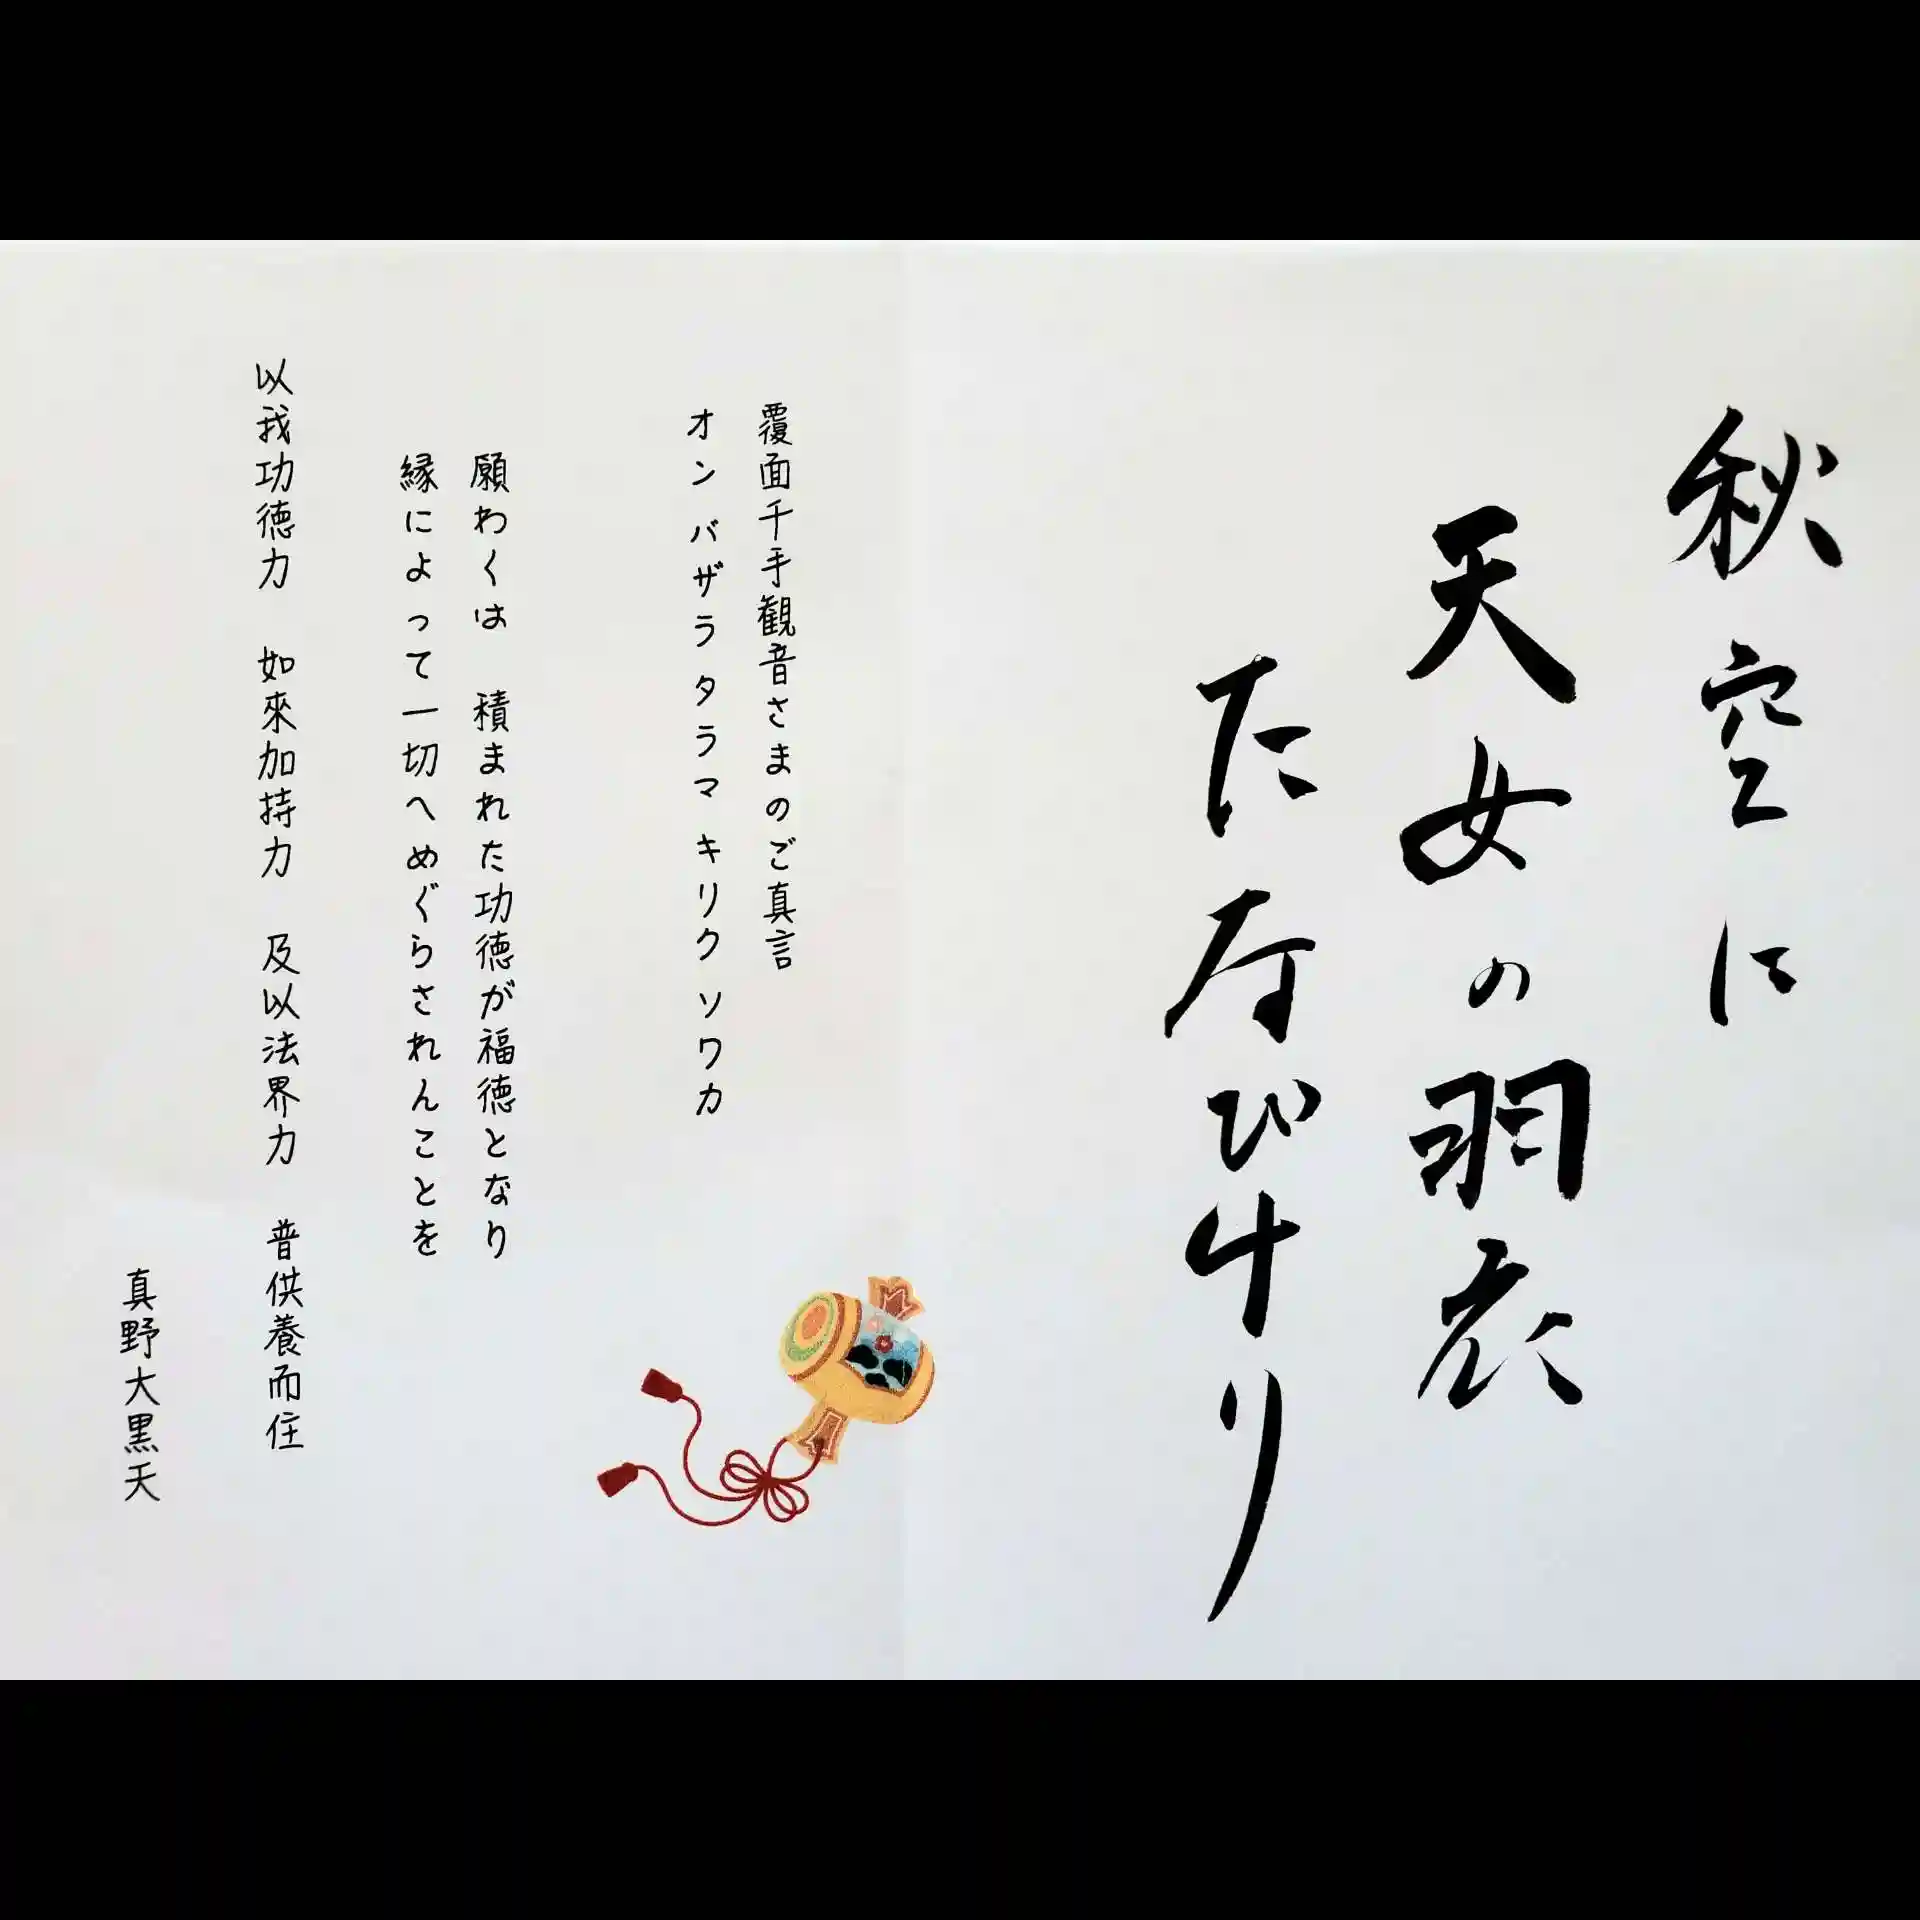 秋空に
天女の羽衣
たなびけり
覆面千手観音さまのご真言
オン バザラ タラマ キリク ソワカ
願わくは 積まれた功徳が福徳となり
縁によって一切へめぐらされんことを
以我功徳力 如來加持力 及以法界力 普供養而住
真野大黒天